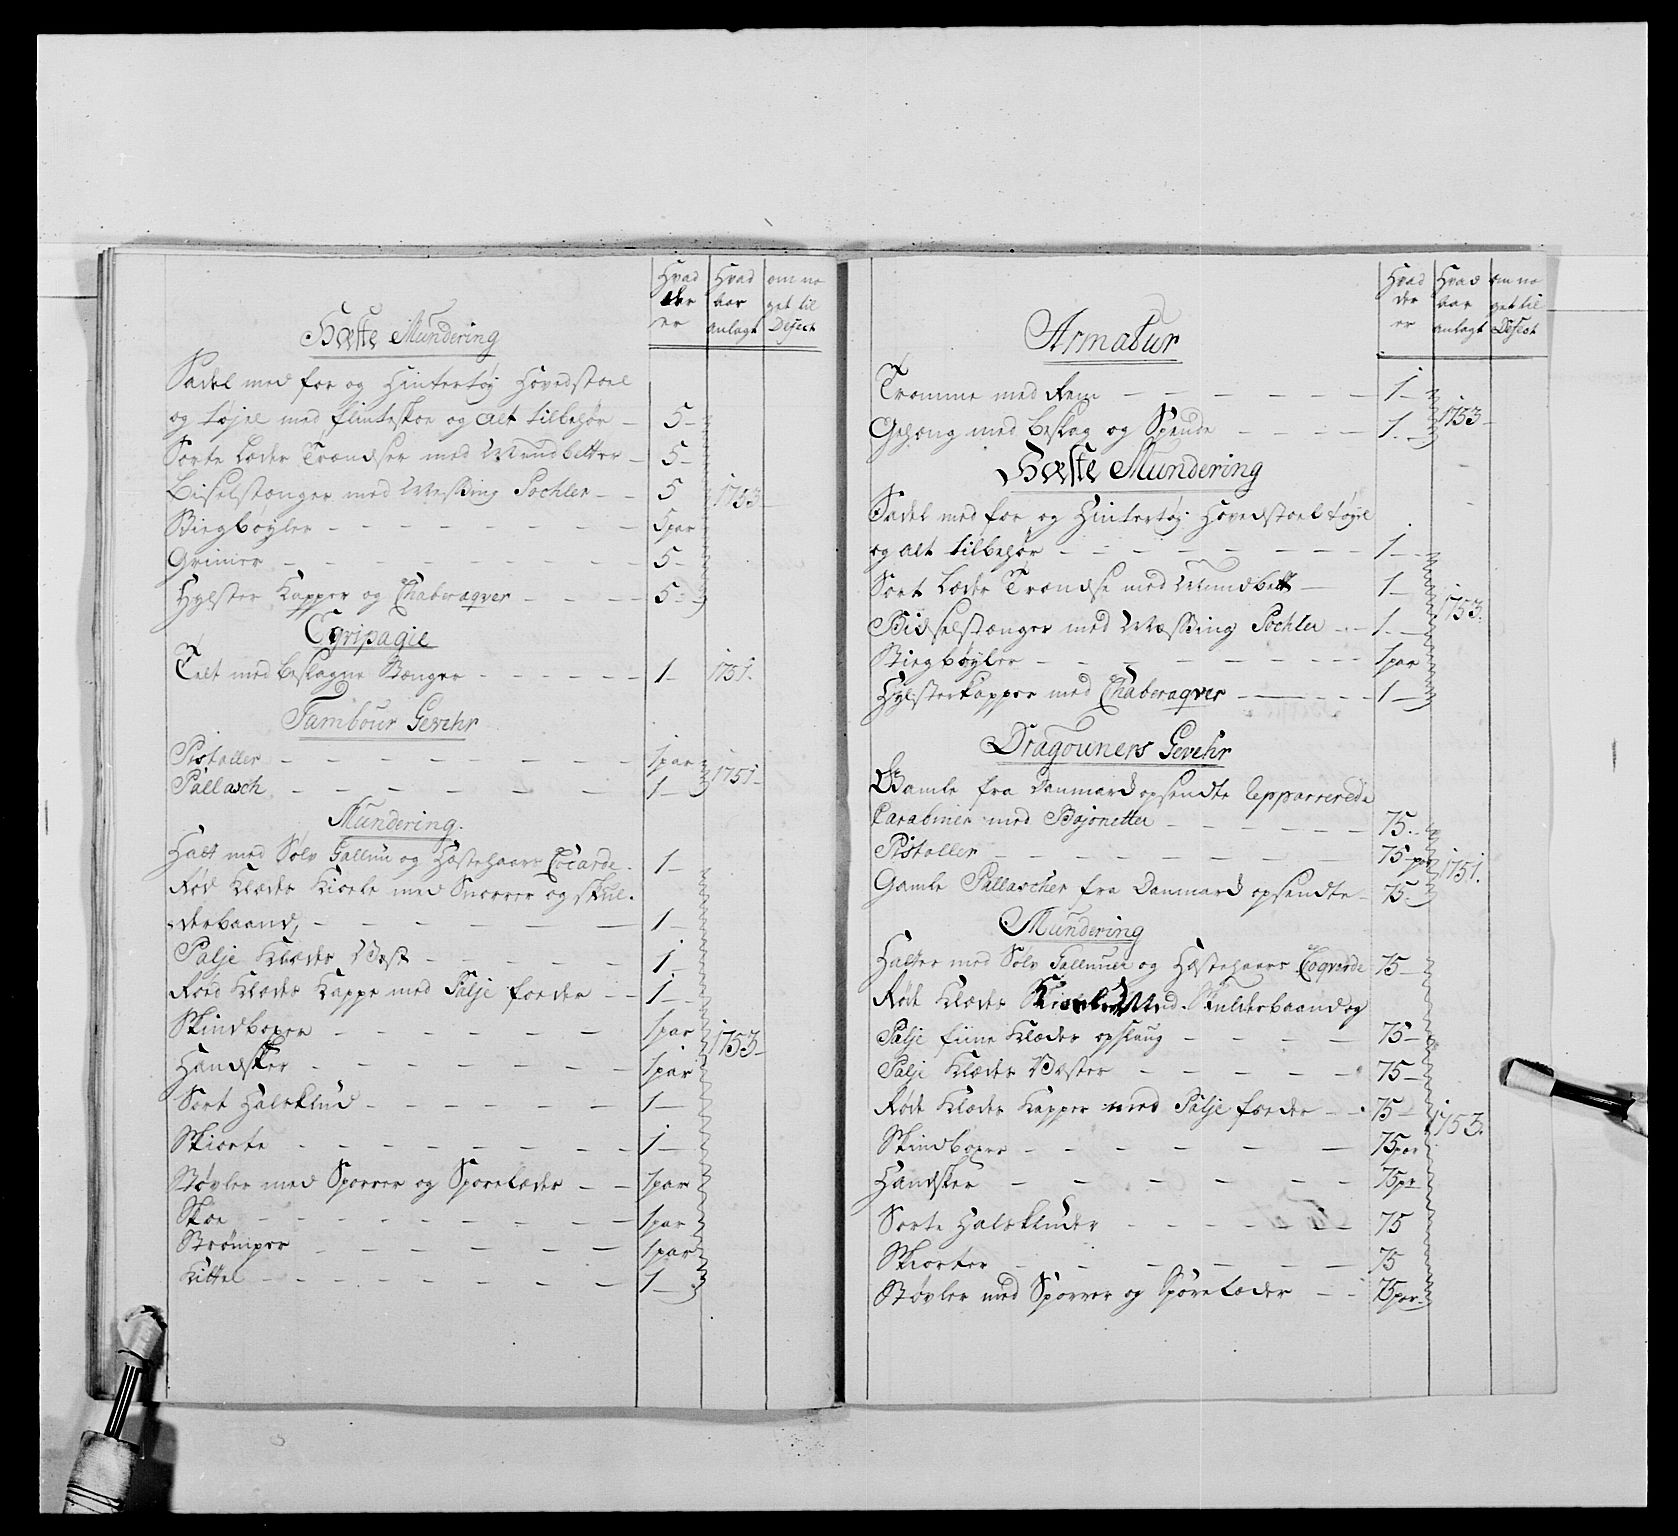 Hvad
der
er
Hvad
aar
anlagt
om no
get til
Defect
Heste Mundering
Sadel med for og Hintertøj Hovedstoel
og tøjel med flinteskoe og alt tilbehør 5
Sorte Læder Trændser med Mundbetter 5
Bidselstænger med Messing Pochler 5 1753
Stiegbøyler 5 par
Grimer 5
Hylster Kapper og Chaberaqver 5
Eqvipagie
Telt med beslagne Stænger 1 1751.
Tambour Gevehr
Pistoller 1 par 1751
Pallasch 1
Mundering.
Hatt med Sølv Galluun og Hæstehaars Cocarde 1
Rød Klædes Kiole med Snorrer og Skul-
derbaand, 1
Palje Klædes Væst 1
Rød Klædes Kappe med Palje foeder 1
Skindboxer 1 par 1753
Handsker 1 par
Sort Halsklud 1
Skiorte 1
Støvler med Sporrer og Sporelæder 1 par
Skoe 1 par
Strömper 1 par
Kittel 1
Hvad
der
er
Hvad
aar
anlagt
om no
get til
Defect
Armatur
Tromme med Rem 1 1753
Gehæng med beslag og Spende 1
Heste Mundering
Sadel med for og Hintertøj Hovedstoel tøjel
og alt tilbehør 1
Sort Læder Trændse med Mundbett 1 1753.
Bidselstænger med Messing Pochler 1
Stiegbøyler 1 par
Hylsterkapper med Chaberaqver 1
Dragouners Gevehr
Gamle fra Danmard opsendte Repparerede
Carabiner med Bajonetter 75
Pistoller 75 par 1751.
Gamle Pallascher fra Danmard opsendte 75
Mundering
Hatter med Sølv Galluner og Hæstehaars Coqvarde 75
Røde Klædes Kioler Med Skulderbaand og
Palje fiine Klæder opslaug 75
Palje Klædes Væster 75
Røde Klædes Kapper med Palje foeder 75 1753.
Skindboxer 75 par
Handsker 75 pr
Sorte Halskluder 75
Skiorter 75
Støvler med Sporrer og Sporelæder 75 par.